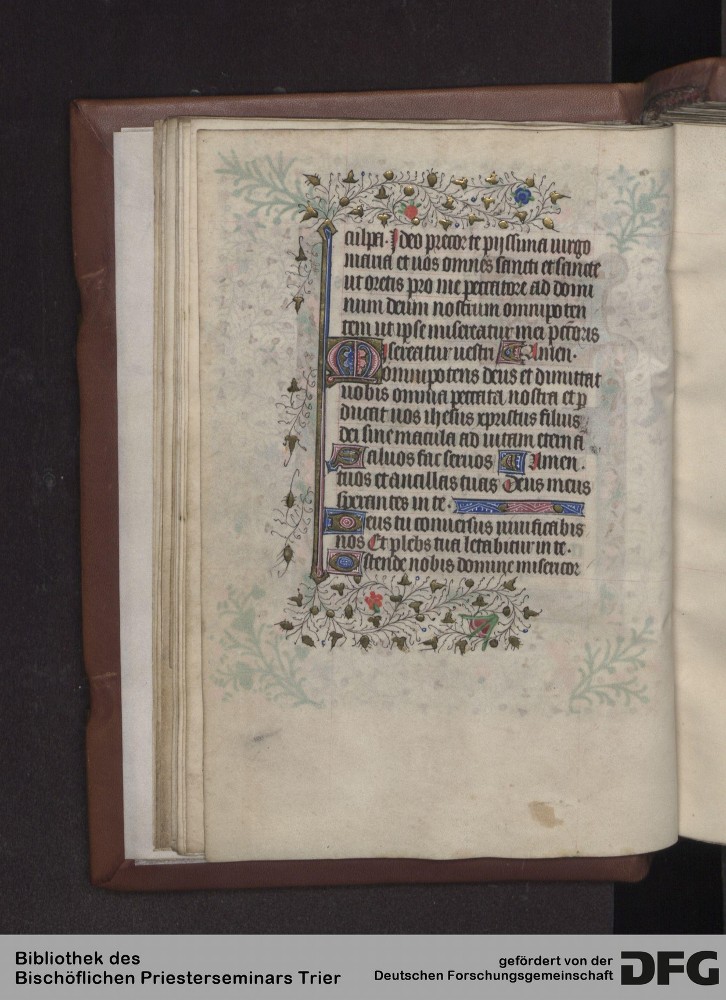 culpa. Ideo precor te pijssima uirgo
maria et uos omnes sancti et sancte
ut oretis pro me peccatore ad domi
num deum nostrum omnipoten
tem ut ipse misereatur mei pctoris
Misereatur uestri Amen.
omnipotens deus et dimittat
uobis omnia peccata nostra et p
ducat uos ihesus xpristus filius
dei sine macula ad uitam eternā
Saluos fac seruos Amen.
tuos et ancillas tuas Deus meus
sperantes in te.
Deus tu conuersus uiuificabis
nos Et plebs tua letabitur in te.
Ostende nobis domine misericor
Bibliothek des
Bischöflichen Priesterseminars Trier
gefördert von der
Deutschen Forschungsgemeinschaft
DFG